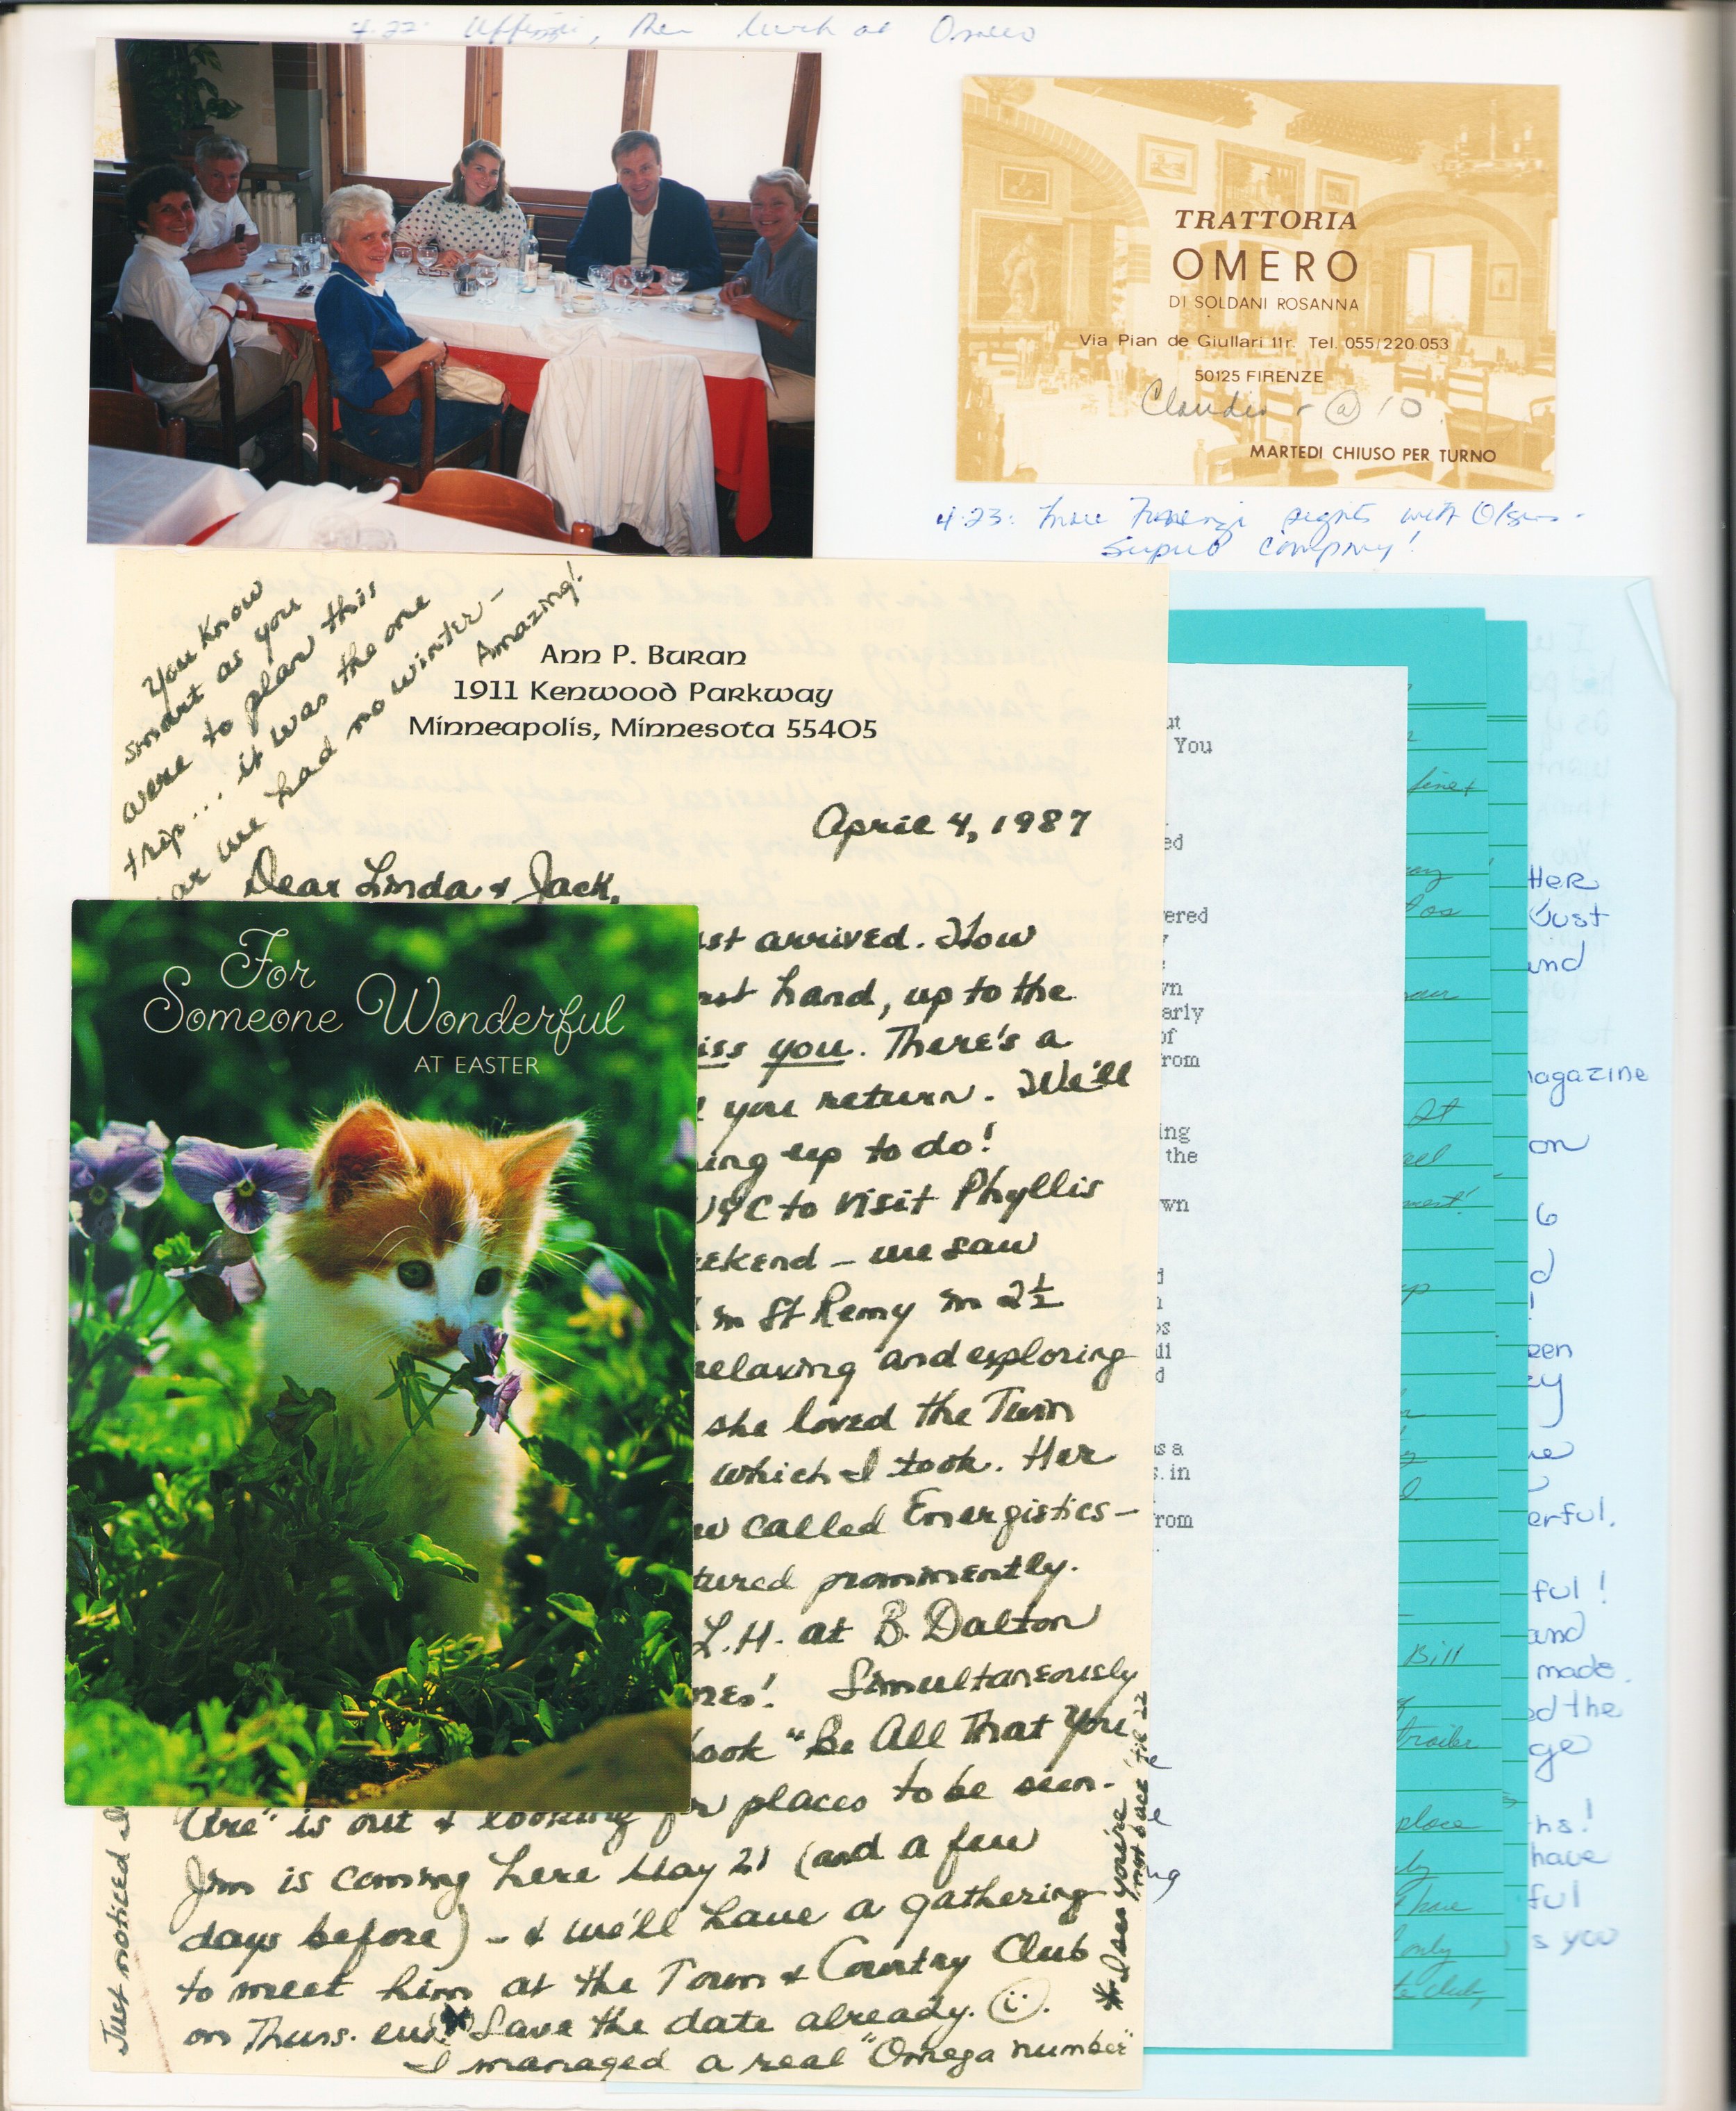 4.22: Uffizzi, then lunch at Omero
TRATTORIA
OMERO
DI SOLDANI ROSANNA
Via Pian de Giullari 11r. Tel. 055/220.053
50125 FIRENZE
@ 10
MARTEDI CHIUSO PER TURNO
4.23: more Firenze sights with Olsens -
superb company!
You know
smart as you
were to plan this
trip... it was the one
we had no winter -
Amazing!
Ann P. Buran
1911 Kenwood Parkway
Minneapolis, Minnesota 55405
April 4, 1987
Dear Linda & Jack,
st arrived. How
hand, up to the
iss you. There's a
you return. We'll
ing up to do!
NYC to visit Phyllis
ekend - we saw
in St Remy in 2½
relaxing and exploring
she loved the Twin
which I took. Her
called Energistics -
tured prominently.
L.H. at B. Dalton
Simultaneously
book "Be All That You
Are" is out & looking for places to be seen.
Jim is coming here May 21 (and a few
days before) - & we'll have a gathering
to meet him at the Town & Country Club
on Thurs. eve.* Save the date already.
I managed a real "Omega number"
Just noticed I
* I see you're
not back til 22
For
Someone Wonderful
AT EASTER
ut
You
ed
ered
wn
arly
of
rom
ing
the
wn
os
ll
d
as a
s. in
rom
ng
fine &
It
Bill
trailer
place
have
only
club,
HER
Just
and
magazine
on
6
een
erful.
ful!
and
made.
ed the
ge
hs!
have
ful
s you